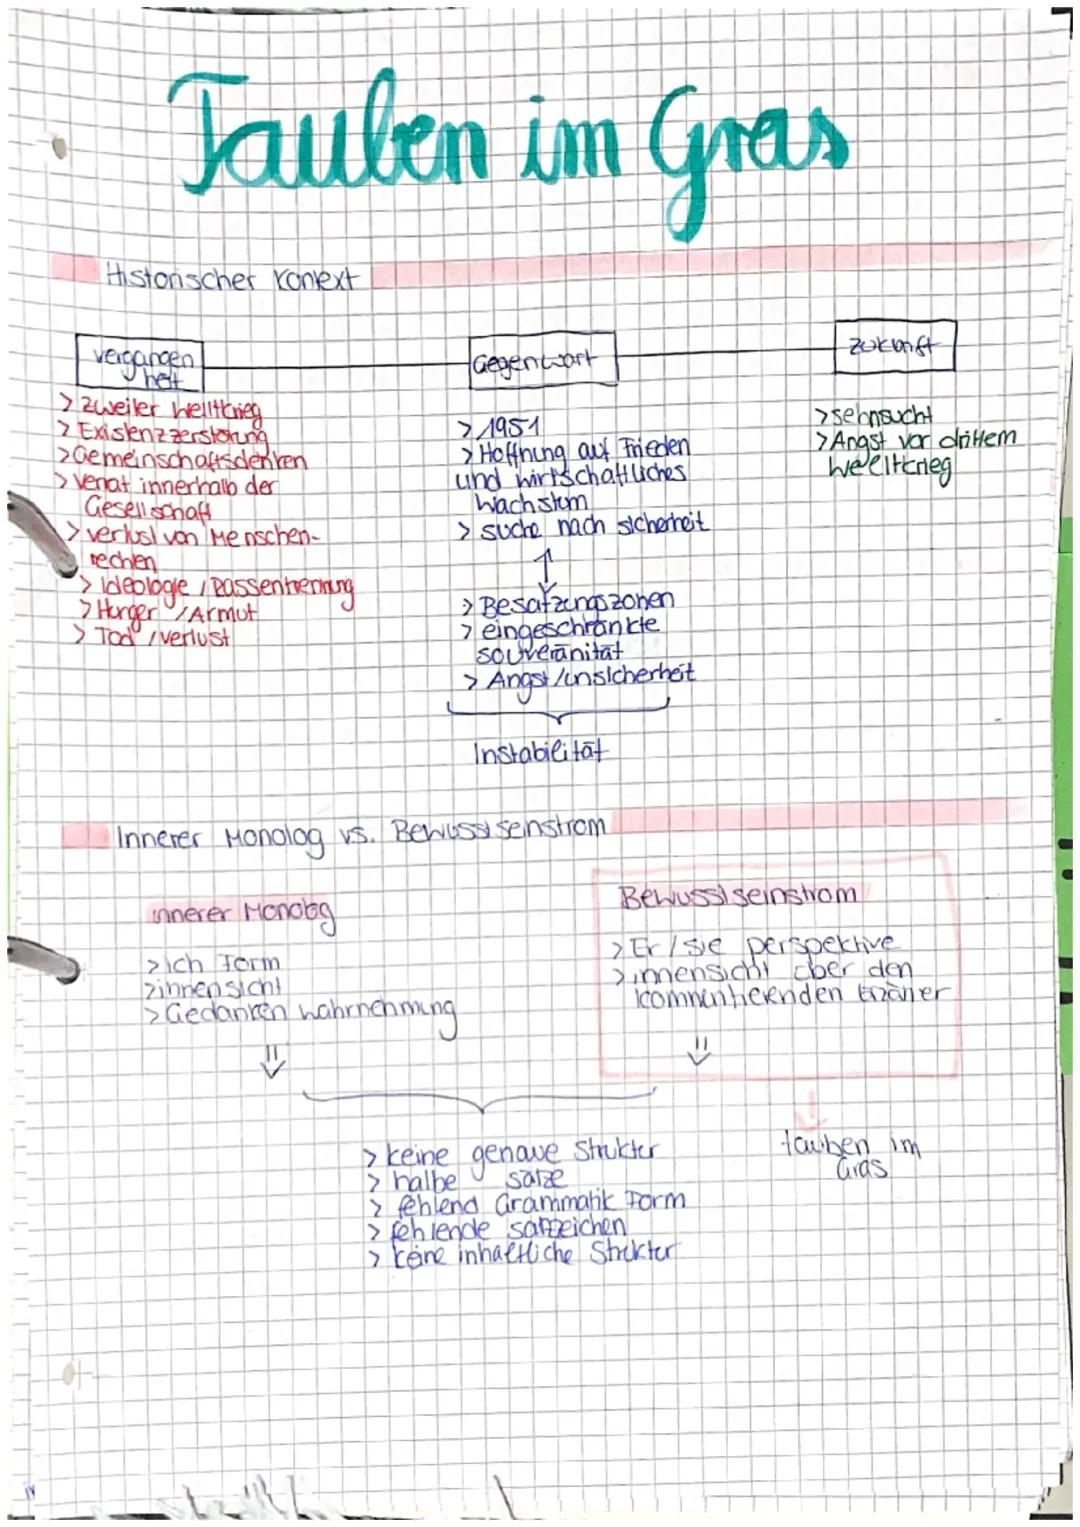 Tauben im Gras
Historischer Konext
vergangen
heit
Gegenwart
zukunft
> zweiter Welltkrieg
> Existenzzerstörung
> Gemeinschaftsdenken
> verrat innerhalb der
Gesellschaft
> verlust von Menschen-
rechen
> Ideologie / Rassentrennung
> Hunger / Armut
> Tod / verlust
> 1951
> Hoffnung auf Frieden
und wirtschaftliches
wachstum
> suche nach sicherheit
> Besatzungszonen
> eingeschränkte
souveränität
> Angst / unsicherheit
Instabilität
> sehnsucht
> Angst vor drittem
welltkrieg
Innerer Monolog vs. Bewusstseinstrom
innerer Monolog
> ich Form
> innensicht
> Gedanken wahrnehmung
Bewusstseinstrom
> Er / sie perspektive
> innensicht über den
kommentierenden Erzäner
> keine genaue struktur
> halbe sätze
> fehlend Grammatik Form
> fehlende satzeichen
> keine inhaltliche Struktur
tauben im
Gras